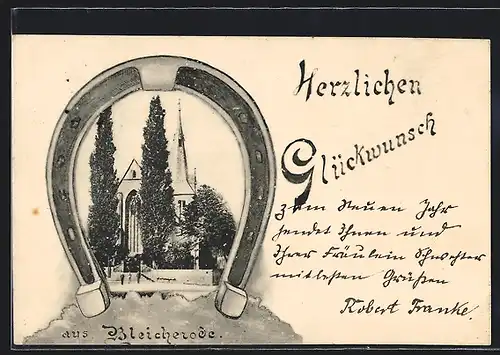 Herzlichen
Glückwunsch
zum Neuen Jahr
sendet Ihnen und
Ihrer Fräulein Schwester
mit besten Grüßen
Robert Franke.
aus Bleicherode.